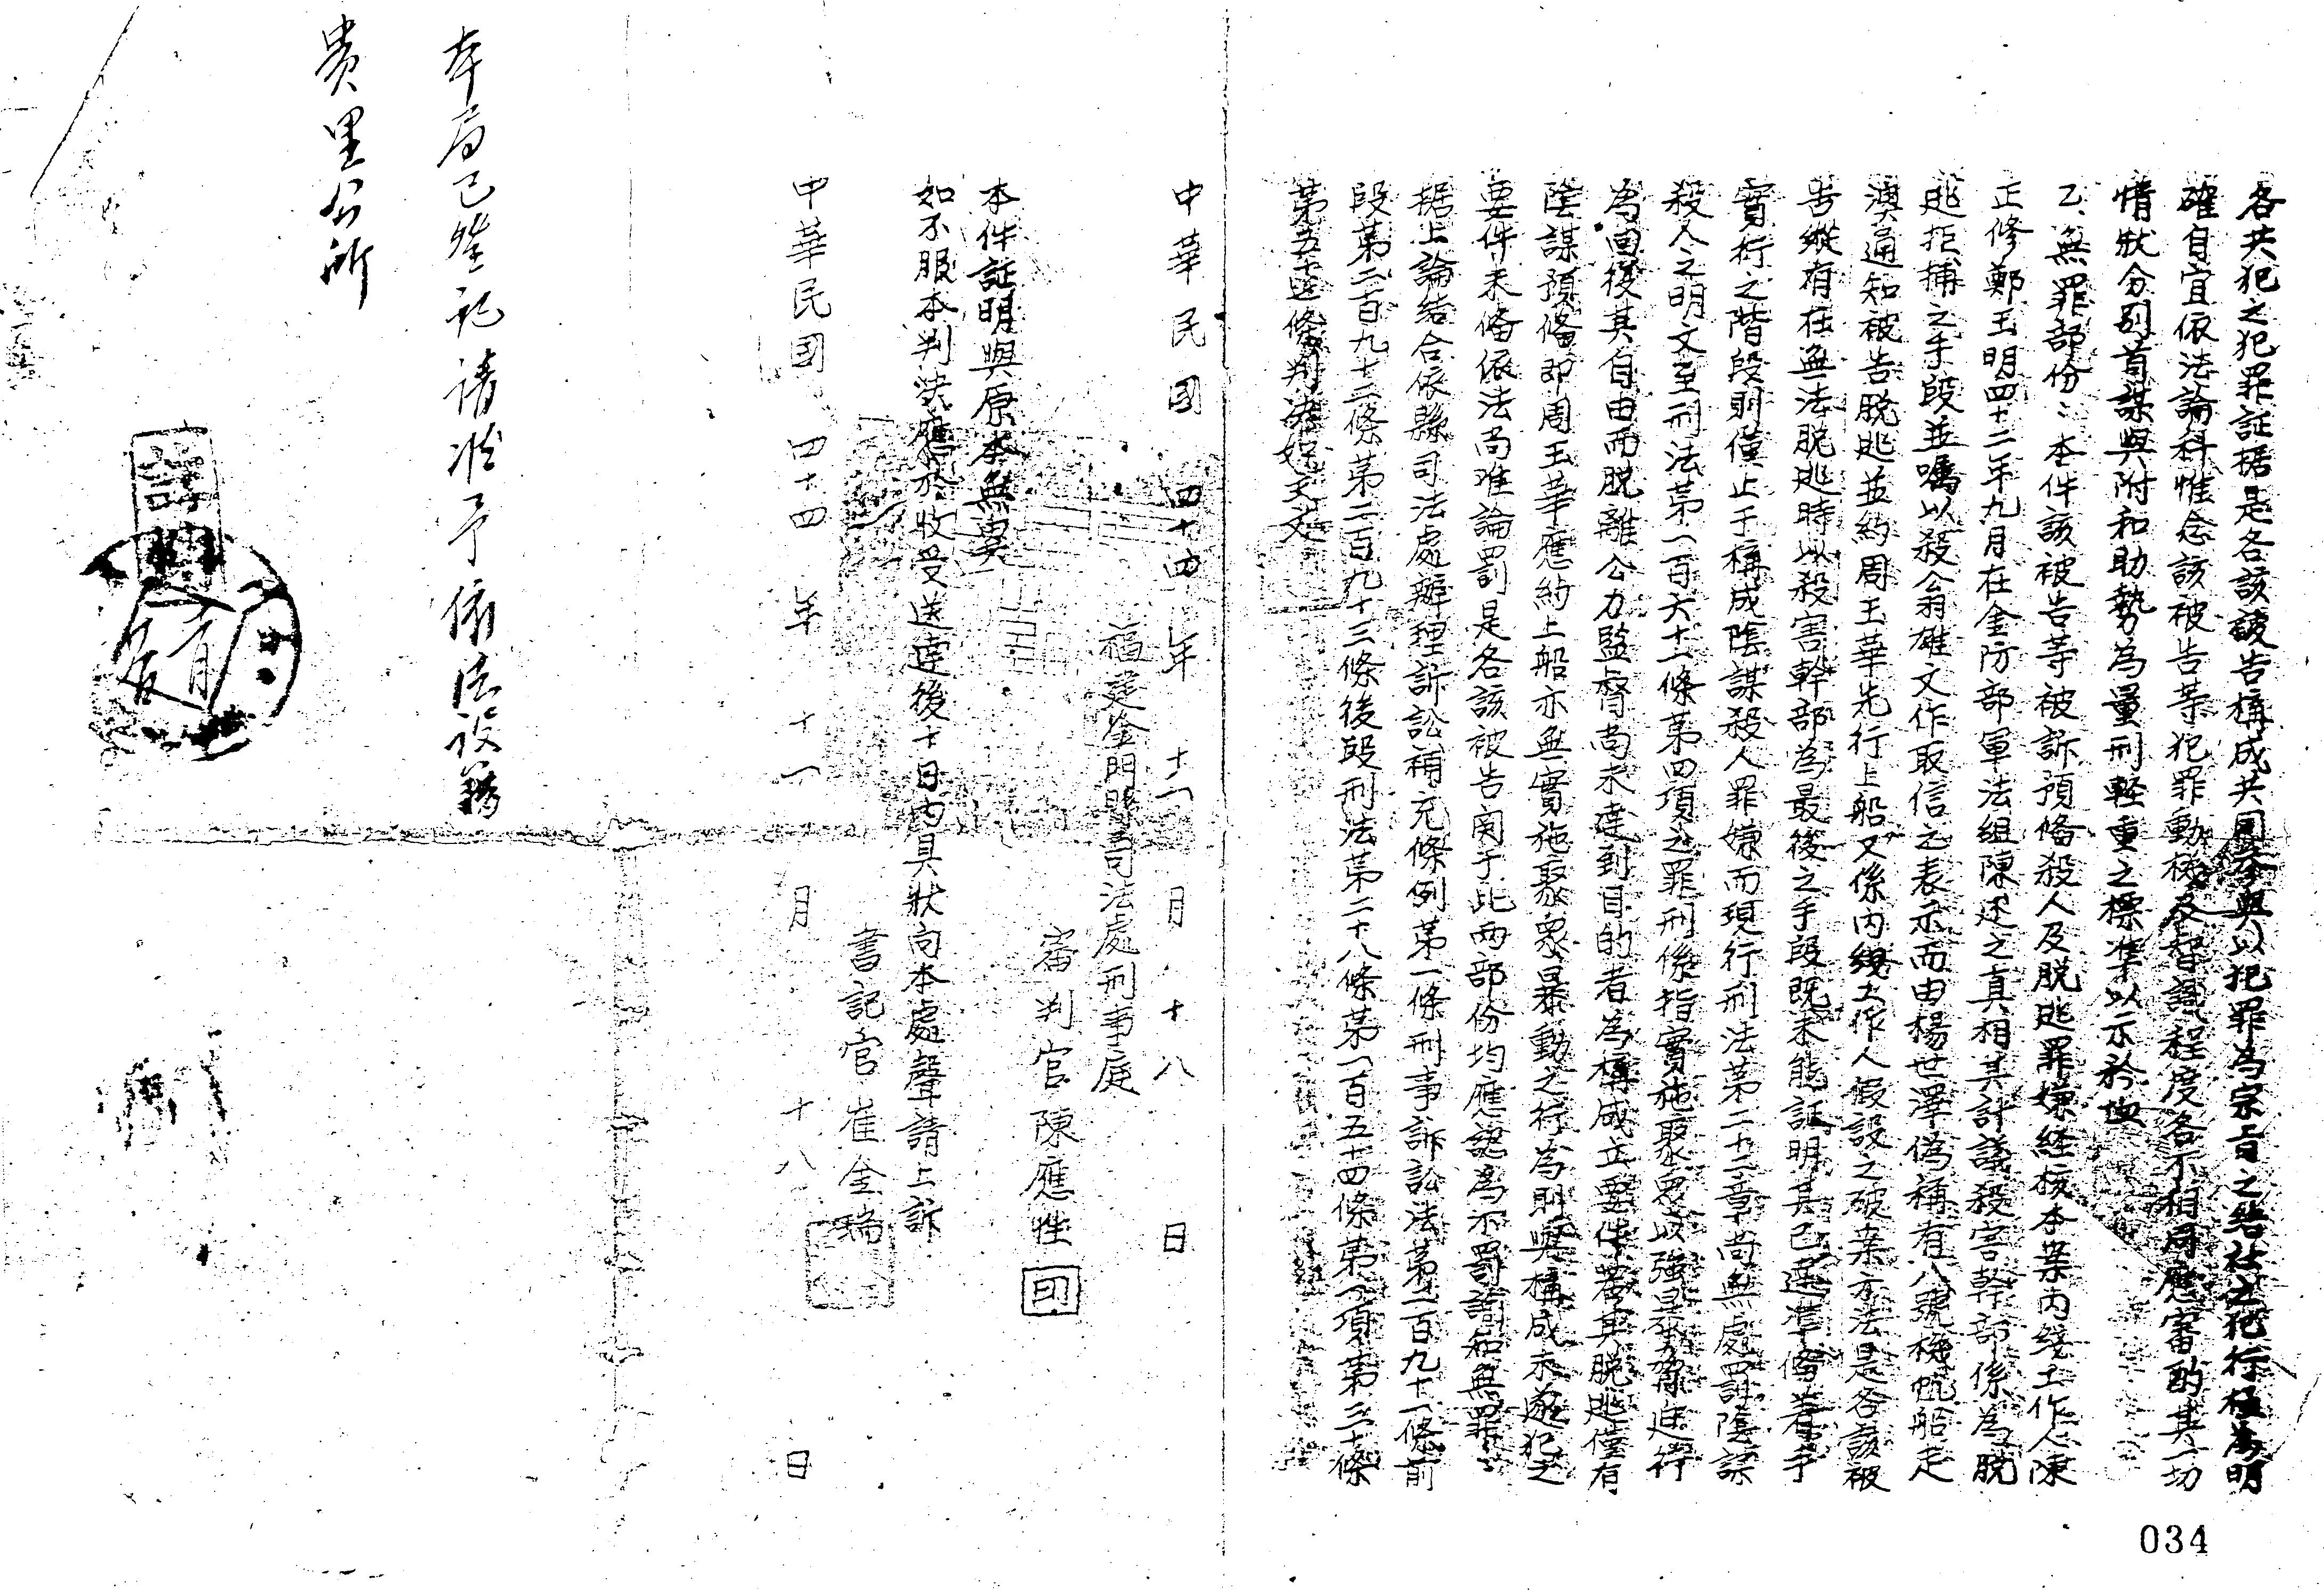 各共犯之犯罪証据是各該被告構成共同參與以犯罪為宗旨之結社之犯行極為明
確自宜依法論科惟念該被告等犯罪動機及智識程度各不相同應審酌其一切
情狀分別首謀與附和助勢為量刑輕重之標準以示矜恤
乙、無罪部份：本件該被告等被訴預備殺人及脫逃罪嫌經核本案內綫工作人陳
正修鄭玉明四十二年九月在金防部軍法組陳述之真相其計議殺害幹部係為脫
逃拒捕之手段並囑以殺翁雄文作取信之表示而由楊世澤偽稱有八號機帆船走
澳通知被告脫逃並約周玉華先行上船又係內綫工作人假設之破案方法是各該被
告縱有在無法脫逃時以殺害幹部為最後之手段既未能証明其已進準備着手
實行之階段則僅止于構成陰謀殺人罪嫌而現行刑法第二十二章尚無處罰陰謀
殺人之明文至刑法第一百六十一條第四項之罪刑係指實施聚眾以強暴脅迫行
為回復其自由而脫離公力監督尚未達到目的者為構成立要件若其脫逃僅有
陰謀預備即周玉華應約上船亦無實施聚眾暴動之行為則與構成未遂犯之
要件未備依法尚难論罰是各該被告関于此兩部份均應認為不罰諭知無罪
据上論結合依縣司法處辦理訴訟補充條例第一條刑事訴訟法第二百九十一條前
段第二百九十二條第二百九十三條後段刑法第二十八條第一百五十四條第一項第三十條
第五十七條判決如主文
中華民國四十四年十一月十八日
福建金門縣司法處刑事庭
審判官陳應性 印
本件証明與原本無異
如不服本判決應於收受送達後十日內具狀向本處聲請上訴
書記官崔金瑞
中華民國四十四年十一月十八日
本局已登記請准予依法設籍
貴里公所
034